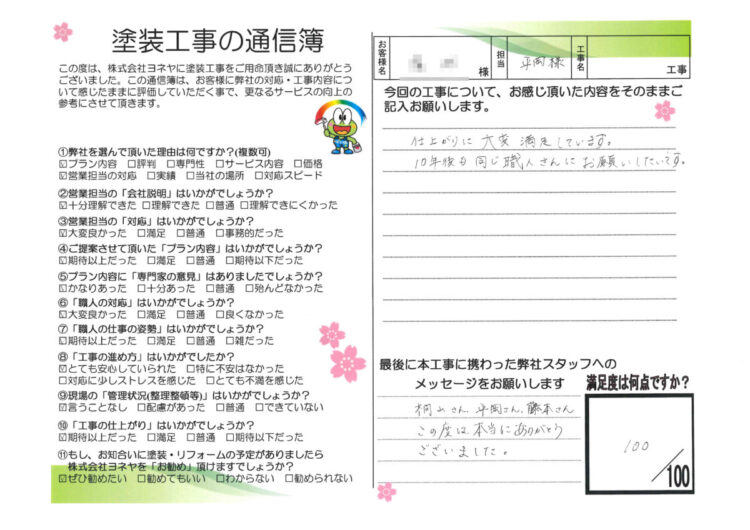 塗装工事の通信簿
この度は、株式会社ヨネヤに塗装工事をご用命頂き誠にありがとう
ございました。この通信簿は、お客様に弊社の対応・工事内容につい
て感じたままに評価していただく事で、更なるサービスの向上の
参考にさせて頂きます。
①弊社を選んで頂いた理由は何ですか?(複数可)
☑プラン内容 □評判 □専門性 □サービス内容 □価格
☑営業担当の対応 □実績 □当社の場所 □対応スピード
②営業担当の「会社説明」はいかがでしょうか?
☑十分理解できた □理解できた □普通 □理解できにくかった
③営業担当の「対応」はいかがでしょうか?
☑大変良かった □満足 □普通 □事務的だった
④ご提案させて頂いた「プラン内容」はいかがでしょうか?
☑期待以上だった □満足 □普通 □期待以下だった
⑤プラン内容に「専門家の意見」はありましたでしょうか?
☑かなりあった □十分あった □普通 □殆んどなかった
⑥「職人の対応」はいかがでしょうか?
☑大変良かった □満足 □普通 □良くなかった
⑦「職人の仕事の姿勢」はいかがでしょうか?
☑期待以上だった □満足 □普通 □雑だった
⑧「工事の進め方」はいかがでしたか?
☑とても安心していられた □特に不安はなかった
□対応に少しストレスを感じた □とても不満を感じた
⑨現場の「管理状況(整理整頓等)」はいかがでしょうか?
☑言うことなし □配慮があった □普通 □できていない
⑩「工事の仕上がり」はいかがでしょうか?
☑期待以上だった □満足 □普通 □期待以下だった
⑪もし、お知合いに塗装・リフォームの予定がありましたら
株式会社ヨネヤを「お勧め」頂けますでしょうか?
☑ぜひ勧めたい □勧めてもいい □わからない □勧められない
お客様名 様 担当 平岡様 工事名 工事
今回の工事について、お感じ頂いた内容をそのままご
記入お願いします。
仕上がりに大変満足しています。
10年後も同じ職人さんにお願いしたいです。
最後に本工事に携わった弊社スタッフへの
メッセージをお願いします
桐山さん、平岡さん、藤本さん
この度は本当にありがとう
ございました。
満足度は何点ですか?
100
/100